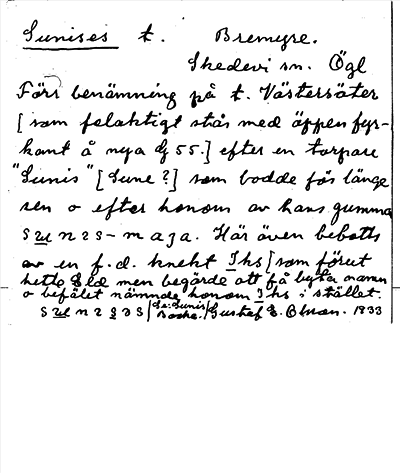 Sunises t. Bremyre.
Skedevi sn. Ögl
Förr benämning på t. Västersäter
[som felaktigt står med öppen fyr-
kant å nya G 55.] efter en torpare
"Sunis" [Sune ?] som bodde för länge
sen o efter honom av hans gumma
maja. Här även bebotts
av en f.d. knekt Ihs [som förut
hette Eld men begärde att få byta namn
o befälet nämnde honom Ihs i stället.
Gustaf E. 1933